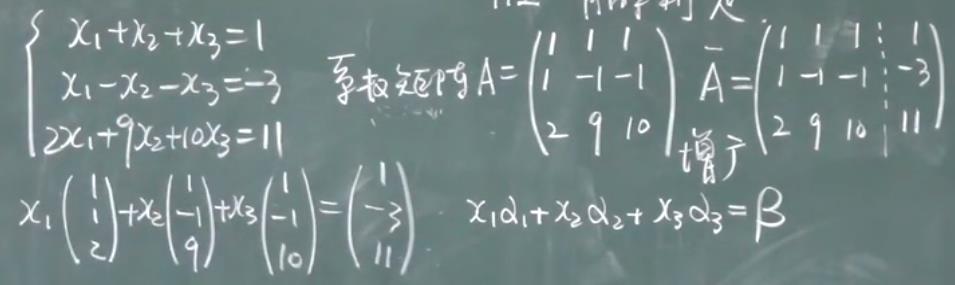 x₁+x₂+x₃=1
x₁-x₂-x₃=-3
2x₁+9x₂+10x₃=11
系数矩阵A=(1 1 1; 1 -1 -1; 2 9 10)
Ā=(1 1 1 ⋮ 1; 1 -1 -1 ⋮ -3; 2 9 10 ⋮ 11)
增广
x₁(1; 1; 2)+x₂(1; -1; 9)+x₃(1; -1; 10)=(1; -3; 11)
x₁α₁+x₂α₂+x₃α₃=β